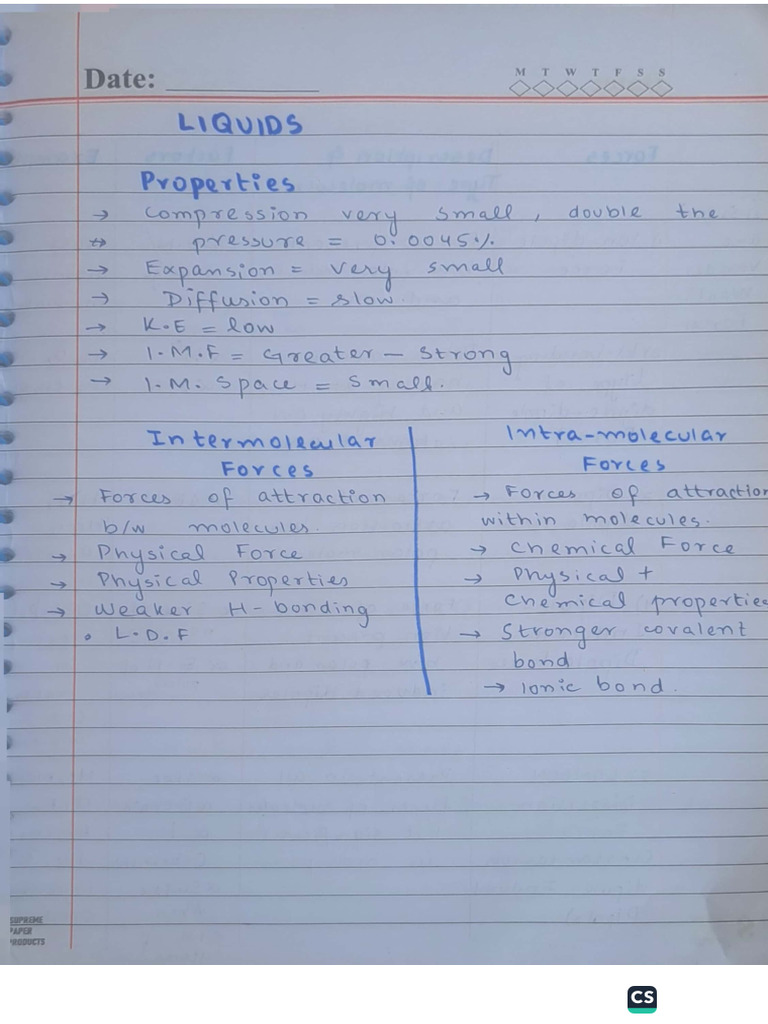 Date:
M T W T F S S
LIQUIDS
Properties
→ Compression very small, double the
↔ pressure = 0.0045%
→ Expansion = very small
→ Diffusion = slow
→ K.E = low
→ I.M.F = Greater – Strong
→ I.M. Space = Small.
Intermolecular
Forces
→ Forces of attraction
b/w molecules.
→ Physical Force
→ Physical Properties
→ Weaker H-bonding
• L.D.F
Intra-molecular
Forces
→ Forces of attraction
within molecules.
→ Chemical Force
→ Physical +
Chemical properties
→ Stronger covalent
bond
→ Ionic bond.
SUPREME
PAPER
PRODUCTS
CS